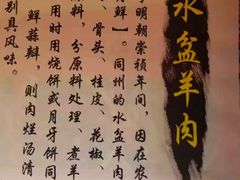 水盆羊肉
于明朝崇祯年间，因在农
鲜】。同州的水盆羊肉
、骨头、桂皮、花椒、
料，分原料处理、煮羊
用时用烧饼或月牙饼同
鲜蒜瓣，则肉烂汤清
别具风味。